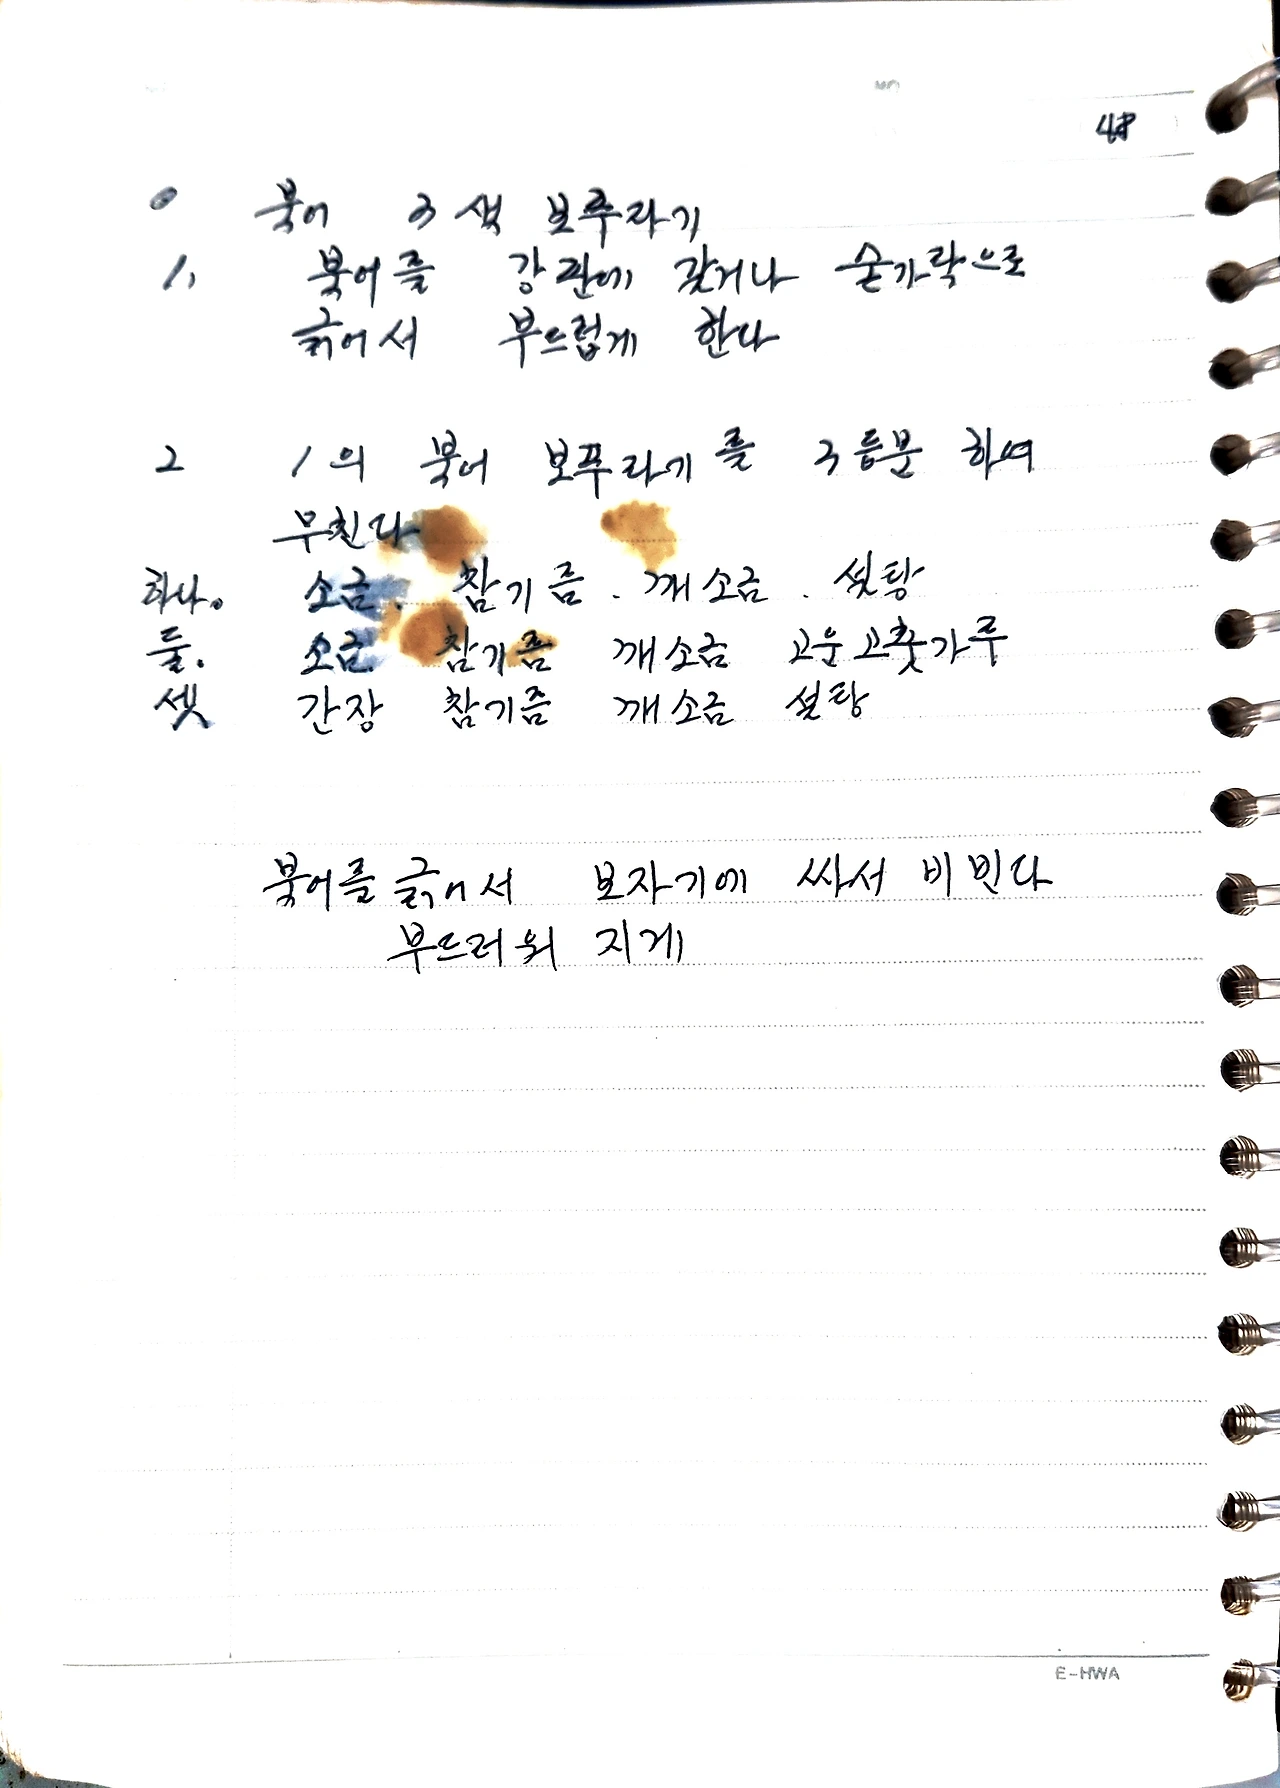 48
북어 3색 보푸라기
1, 북어를 강판에 갈거나 손가락으로
긁어서 부드럽게 한다
2 1의 북어 보푸라기를 3등분 하여
무친다
하나. 소금. 참기름. 깨소금. 설탕
둘. 소금. 참기름 깨소금 고운고춧가루
셋 간장 참기름 깨소금 설탕
북어를 긁어서 보자기에 싸서 비빈다
부드러워 지게
E-HWA